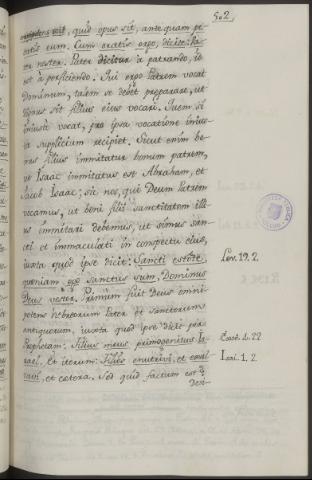 502,
scit, quid opus sit, ante quam pe-
tatis eum. Cum oratis ergo, dicite: Pa-
ter noster. Pater dicitur à patrando, id
est à perficiendo. Qui ergo Patrem vocat
Dominum, talem se debet præparare, ut
dignus sit filius eius vocari. Quem si
iniustè vocat, pro ipsa vocatione inius-
ta supplicium recipiet. Sicut enim bo-
nus filius immitatur bonum patrem,
ut Isaac immitatus est Abraham, et
Jacob Isaac; sic nos, qui Deum Patrem
vocamus, ut boni filii sanctitatem illi-
us immitari debemus, ut simus san-
cti et immaculati in conspectu eius,
iuxta quod ipse dicit: Sancti estote
quoniam ego Sanctus sum, Dominus
Deus vester. Primum fuit Deus omni-
potens Hebreorum Pater et sanctorum
antiquorum, iuxta quod ipse dicit per
Prophetam: Filius meus primogenitus Is-
rael. Et iterum: Filios enutrivi, et exal-
tavi, et cætera. Sed quid factum est?
Lev. 19. 2
Exod. 4. 22
Isai. 1. 2